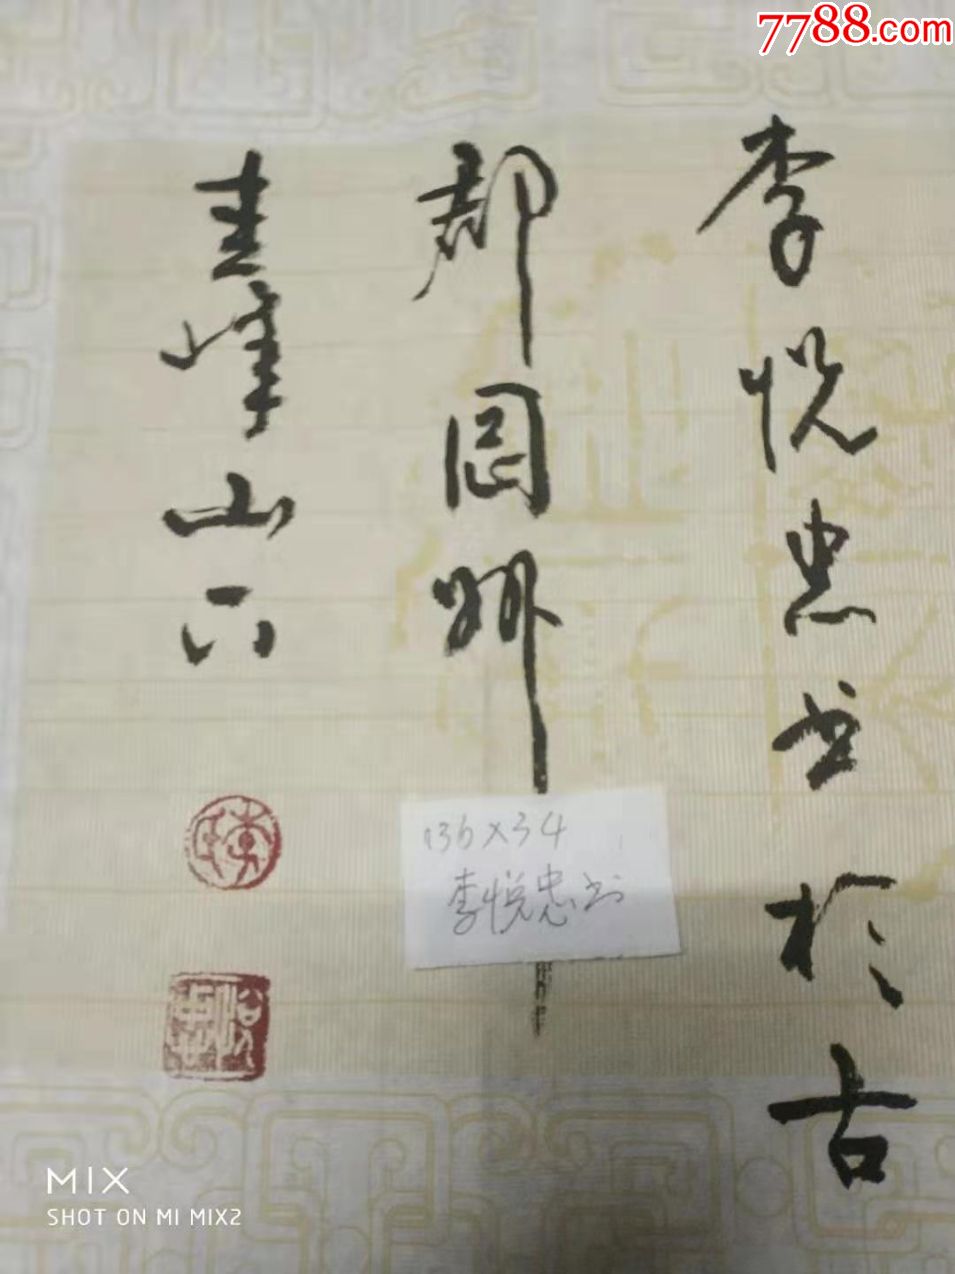 7788.com
李悦忠书於古
郡图娜
青峰山下
136×34
李悦忠书
MIX
SHOT ON MI MIX2